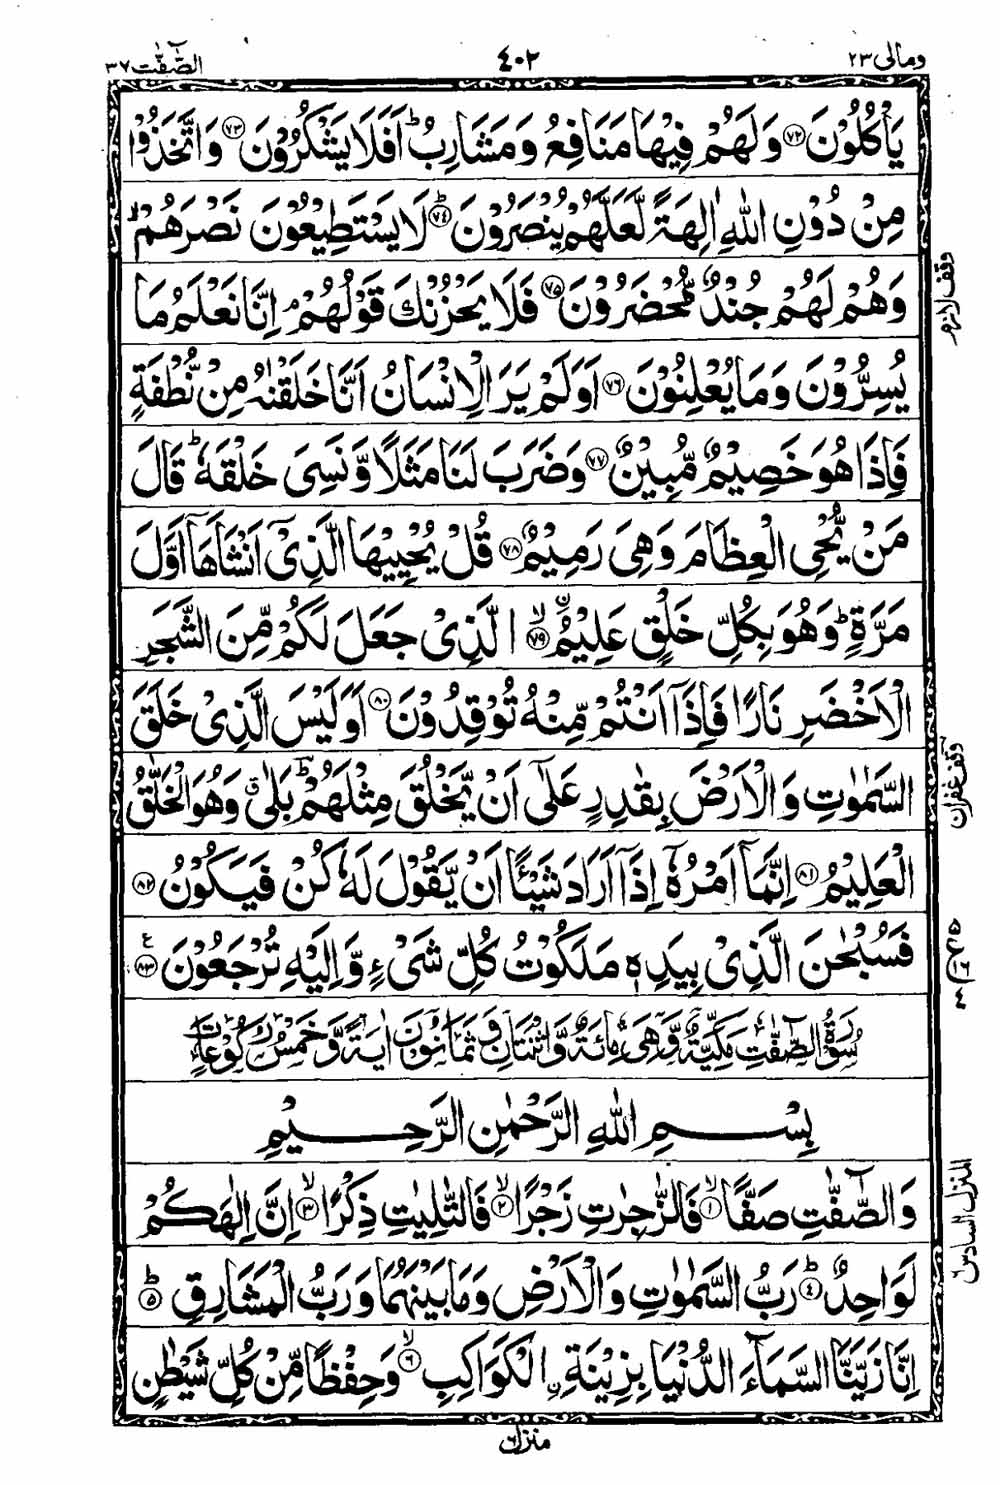 ومالی ٢٣
٤٠٢
الصّٰٓفّٰت ٣٧
يَاْكُلُوْنَ ﴿٧٢﴾ وَلَهُمْ فِيْهَا مَنَافِعُ وَمَشَارِبُ ؕ اَفَلَا يَشْكُرُوْنَ ﴿٧٣﴾ وَاتَّخَذُوْا
مِنْ دُوْنِ اللّٰهِ اٰلِهَةً لَّعَلَّهُمْ يُنْصَرُوْنَ ؕ﴿٧٤﴾ لَا يَسْتَطِيْعُوْنَ نَصْرَهُمْ ۙ
وَهُمْ لَهُمْ جُنْدٌ مُّحْضَرُوْنَ ﴿٧٥﴾ فَلَا يَحْزُنْكَ قَوْلُهُمْ ۘ اِنَّا نَعْلَمُ مَا
يُسِرُّوْنَ وَمَا يُعْلِنُوْنَ ﴿٧٦﴾ اَوَلَمْ يَرَ الْاِنْسَانُ اَنَّا خَلَقْنٰهُ مِنْ نُّطْفَةٍ
فَاِذَا هُوَ خَصِيْمٌ مُّبِيْنٌ ﴿٧٧﴾ وَضَرَبَ لَنَا مَثَلًا وَّنَسِيَ خَلْقَهٗ ؕ قَالَ
مَنْ يُّحْيِ الْعِظَامَ وَهِيَ رَمِيْمٌ ﴿٧٨﴾ قُلْ يُحْيِيْهَا الَّذِيْٓ اَنْشَاَهَاۤ اَوَّلَ
مَرَّةٍ ؕ وَهُوَ بِكُلِّ خَلْقٍ عَلِيْمُ ۙ﴿٧٩﴾ ۨالَّذِيْ جَعَلَ لَكُمْ مِّنَ الشَّجَرِ
الْاَخْضَرِ نَارًا فَاِذَاۤ اَنْتُمْ مِّنْهُ تُوْقِدُوْنَ ﴿٨٠﴾ اَوَلَيْسَ الَّذِيْ خَلَقَ
السَّمٰوٰتِ وَالْاَرْضَ بِقٰدِرٍ عَلٰٓى اَنْ يَّخْلُقَ مِثْلَهُمْ ؕ بَلٰى ۗ وَهُوَ الْخَلّٰقُ
الْعَلِيْمُ ﴿٨١﴾ اِنَّمَاۤ اَمْرُهٗۤ اِذَاۤ اَرَادَ شَيْـًٔا اَنْ يَّقُوْلَ لَهٗ كُنْ فَيَكُوْنُ ﴿٨٢﴾
فَسُبْحٰنَ الَّذِيْ بِيَدِهٖ مَلَكُوْتُ كُلِّ شَيْءٍ وَّاِلَيْهِ تُرْجَعُوْنَ ﴿٨٣﴾ ع
سُوْرَةُ الصّٰٓفّٰتِ مَكِّيَّةٌ وَّهِيَ مِائَةٌ وَّاثْنَتَانِ وَثَمَانُوْنَ اٰيَةً وَّخَمْسُ رُكُوْعَاتٍ
بِسْمِ اللّٰهِ الرَّحْمٰنِ الرَّحِيْمِ
وَالصّٰٓفّٰتِ صَفًّا ۙ﴿١﴾ فَالزّٰجِرٰتِ زَجْرًا ۙ﴿٢﴾ فَالتّٰلِيٰتِ ذِكْرًا ۙ﴿٣﴾ اِنَّ اِلٰهَكُمْ
لَوَاحِدٌ ؕ﴿٤﴾ رَبُّ السَّمٰوٰتِ وَالْاَرْضِ وَمَا بَيْنَهُمَا وَرَبُّ الْمَشَارِقِ ؕ﴿٥﴾
اِنَّا زَيَّنَّا السَّمَآءَ الدُّنْيَا بِزِيْنَةِ ۨالْكَوَاكِبِ ۙ﴿٦﴾ وَحِفْظًا مِّنْ كُلِّ شَيْطٰنٍ
وقف لازم
وقف غفران
المنزل السادس ٦
منزل ٦